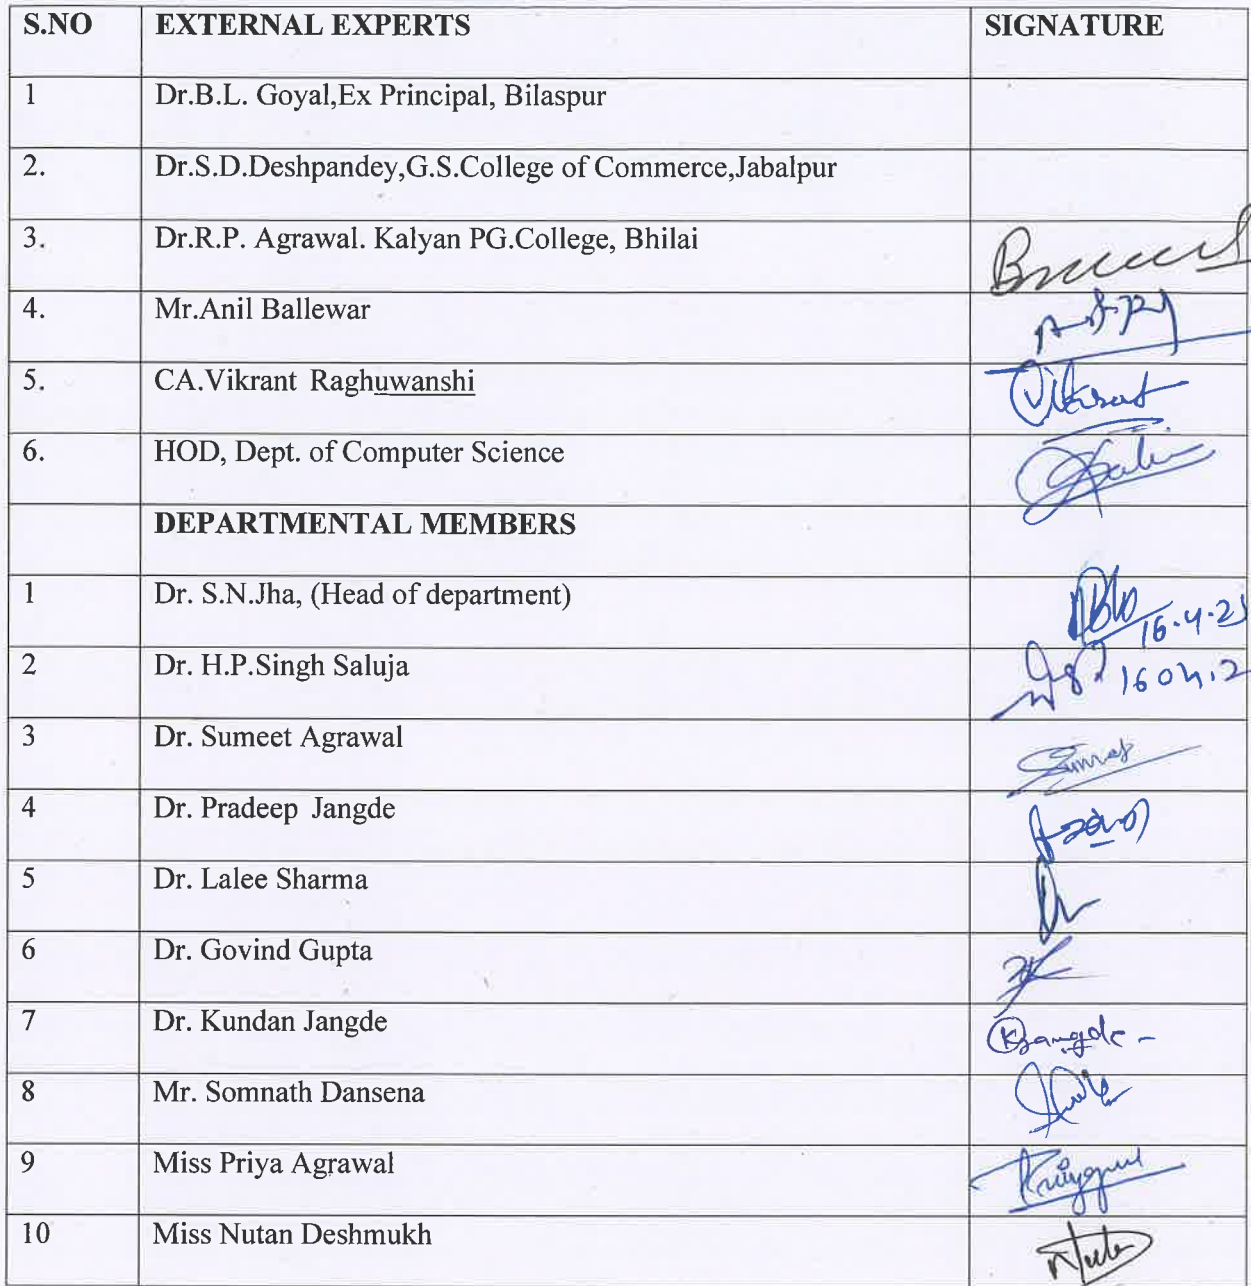 S.NO EXTERNAL EXPERTS SIGNATURE
1 Dr.B.L. Goyal,Ex Principal, Bilaspur
2. Dr.S.D.Deshpandey,G.S.College of Commerce,Jabalpur
3. Dr.R.P. Agrawal. Kalyan PG.College, Bhilai
4. Mr.Anil Ballewar
5. CA.Vikrant Raghuwanshi Vikrant
6. HOD, Dept. of Computer Science
DEPARTMENTAL MEMBERS
1 Dr. S.N.Jha, (Head of department) 16.4.2
2 Dr. H.P.Singh Saluja 1604.2
3 Dr. Sumeet Agrawal
4 Dr. Pradeep Jangde
5 Dr. Lalee Sharma
6 Dr. Govind Gupta
7 Dr. Kundan Jangde KJangde
8 Mr. Somnath Dansena
9 Miss Priya Agrawal
10 Miss Nutan Deshmukh